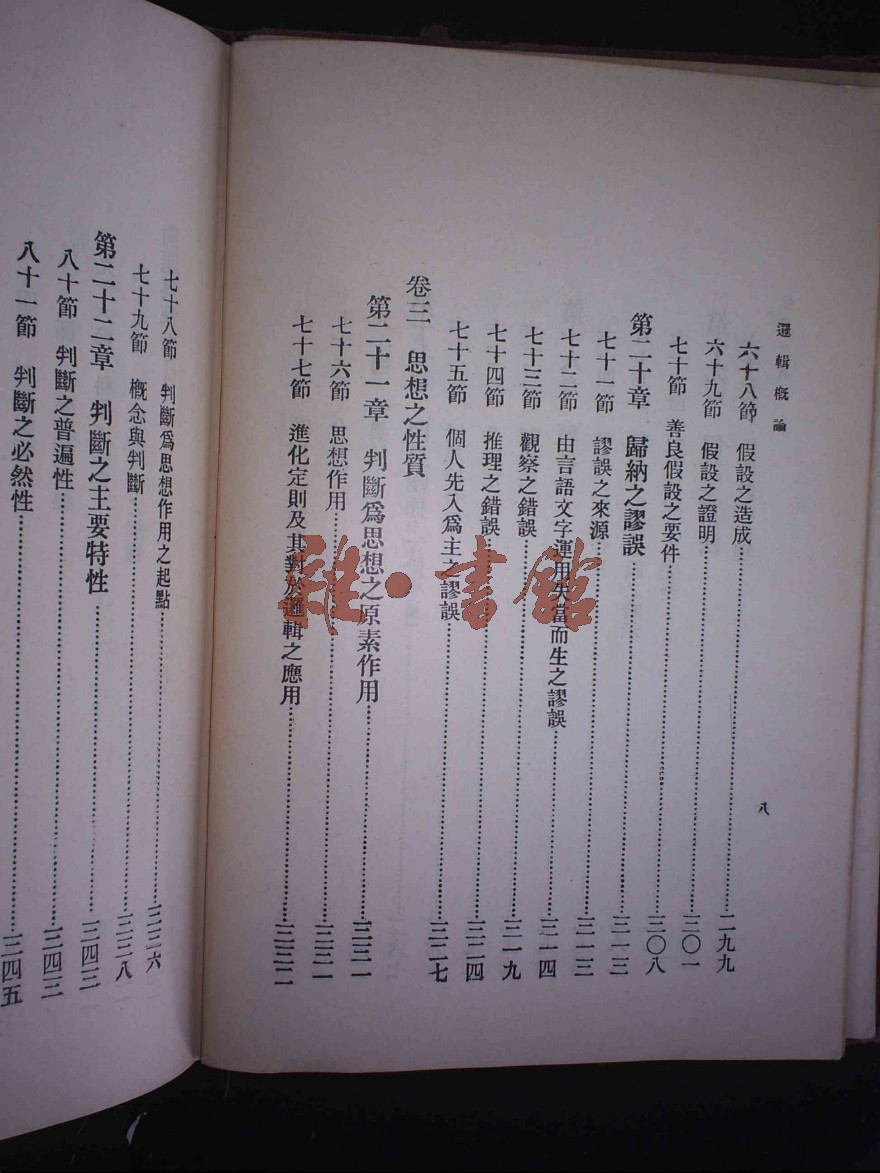 邏輯概論
八
六十八節 假設之造成……二九九
六十九節 假設之證明……三〇一
七十節 善良假設之要件……三〇八
第二十章 歸納之謬誤……三一三
七十一節 謬誤之來源……三一三
七十二節 由言語文字運用失當而生之謬誤……三一四
七十三節 觀察之錯誤……三一九
七十四節 推理之錯誤……三二四
七十五節 個人先入爲主之謬誤……三二七
卷三 思想之性質
第二十一章 判斷爲思想之原素作用……三三一
七十六節 思想作用……三三一
七十七節 進化定則及其對於邏輯之應用……三三二
七十八節 判斷爲思想作用之起點……三三六
七十九節 概念與判斷……三三八
第二十二章 判斷之主要特性……三四三
八十節 判斷之普遍性……三四三
八十一節 判斷之必然性……三四五
雜·書館